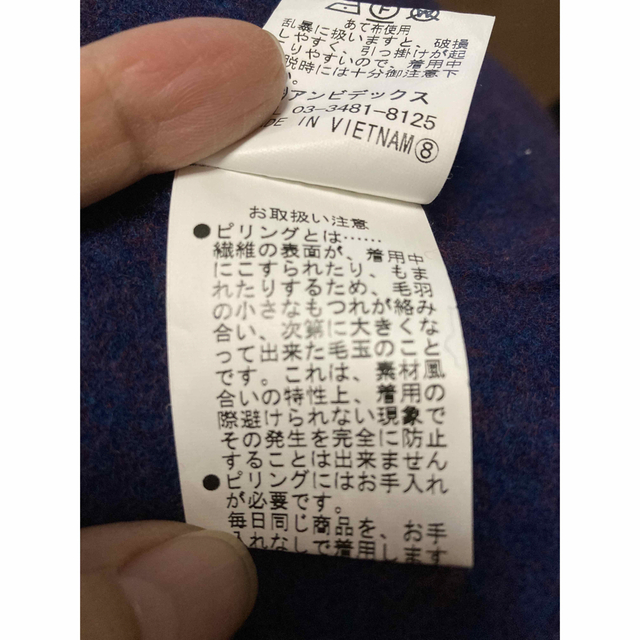 あて布使用
乱暴に扱いますと、破損
しやすく、引っ掛けが起
りやすいので、着用中
脱時には十分御注意下
い。
アンビデックス
03-3481-8125
DE IN VIETNAM⑧
お取扱い注意
●ピリングとは……
繊維の表面が、着用中
にこすられたり、もま
れたりするため、毛羽
の小さなもつれが絡み
合い、次第に大きくな
って出来た毛玉のこと
です。これは、素材風
合いの特性上、着用の
際避けられない現象で
その発生を完全に防止
することは出来ません
●ピリングにはお手入れ
が必要です。
毎日同じ商品を、お手
入れなしで着用します